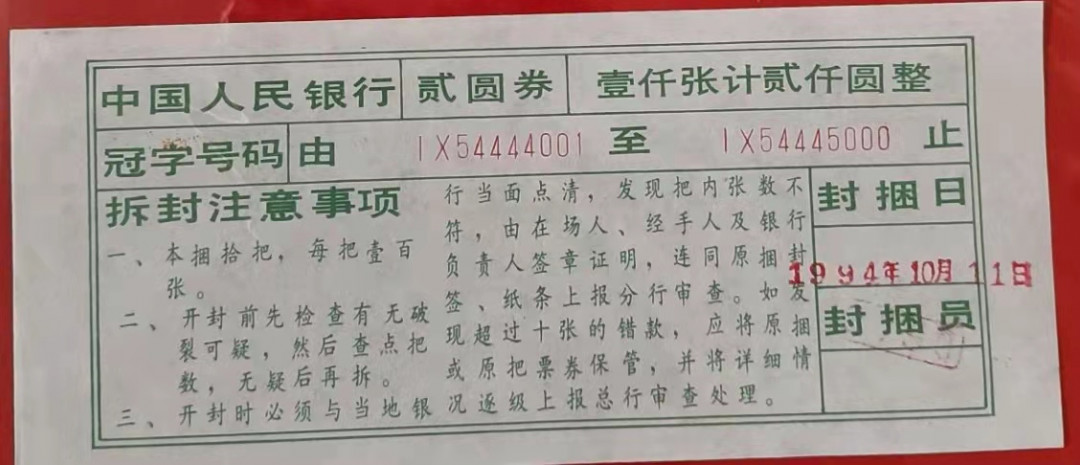 中国人民银行 贰圆券 壹仟张计贰仟圆整
冠字号码 由 IX54444001 至 IX54445000 止
拆封注意事项
一、本捆拾把，每把壹百
张。
二、开封前先检查有无破
裂可疑，然后查点把
数，无疑后再拆。
三、开封时必须与当地银
行当面点清，发现把内张数不
符，由在场人、经手人及银行
负责人签章证明，连同原捆封
签、纸条上报分行审查。如发
现超过十张的错款，应将原捆
或原把票券保管，并将详细情
况逐级上报总行审查处理。
封捆日
1994年10月11日
封捆员